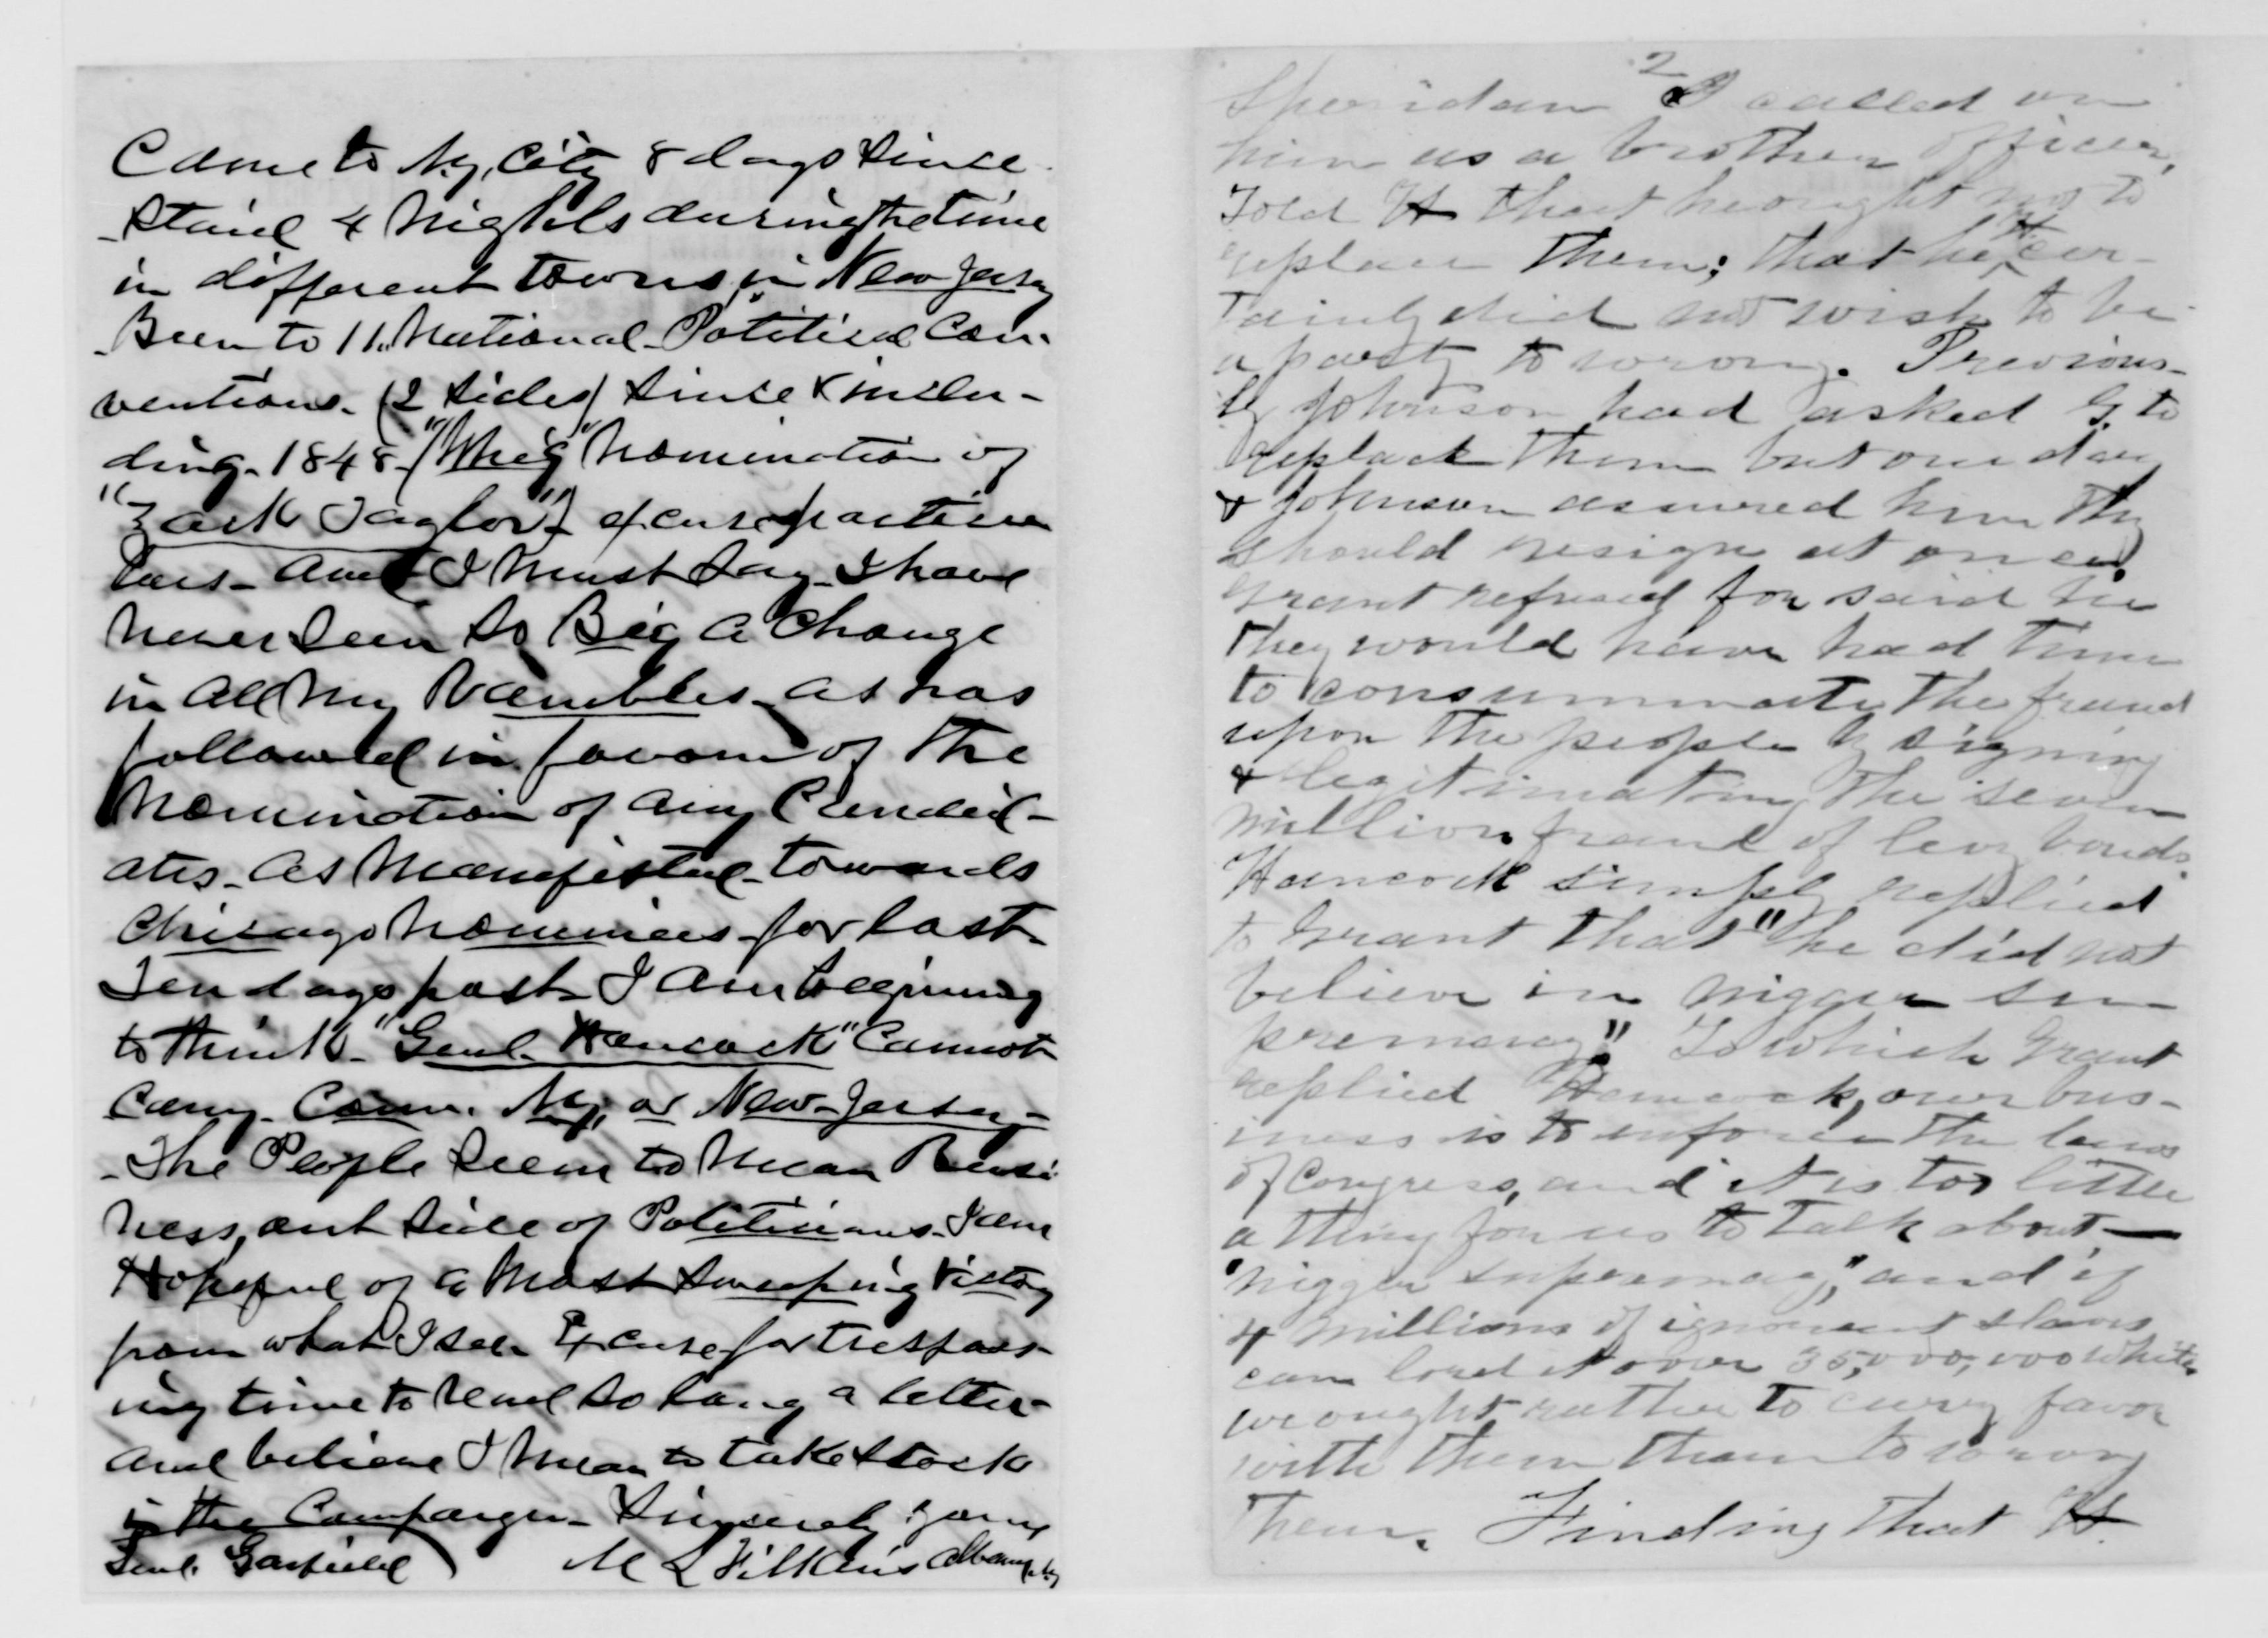 Came to N.y. City 8 days since
Staid 4 Nights during the time
in different towns in New Jersey
Been to 11. National Political Con-
ventions. (2 sides) since & inclu-
ding. 1848. ("Whig" Nomination of
"Zack Taylor") excuse
And I Must Say. I have
Never Seen So Big a Change
in all My Rambles as has
followed in favour of the
Nomination of any Candid-
ates. as Manifested towards
Chicago Nominees for last
Ten days past. I am beginning
to think "Genl. Hancock" Cannot
Carry. Conn. N.y. or New-Jersey-
- The People Seem to Mean Busi-
Ness, out side of Politicians. I am
Hopeful of a Most Sweeping Victory
from what I see. Excuse for trespass-
ing time to read so long a letter-
and believe I Mean to take stock
in the Campaign- Sincerely yours
Genl. Garfield M L Filkins Albany, N.y
2
Sheridan I called on
him as a brother officer,
Told H that he ought not to
replace them; that he H. cer-
tainly did not wish to be
a party to wrong. Previous-
ly Johnson had asked G. to
replace them but one day
& Johnson assured him they
should resign at once.
Grant refused for said he
they would have had time
to consummate the fraud
upon the people by signing
& legitimating the seven
million fraud of levy bonds.
Hancock simply replied
to Grant that "he did not
believe in nigger su-
premacy." To which Grant
replied Hancock, our bus-
iness is to enforce the laws
of Congress, and it is too little
a thing for us to talk about—
"nigger supremacy," and if
4 millions of ignorant slaves
can lord it over 35,000,000 whites
we ought rather to curry favor
with them than to wrong
them. Finding that H.